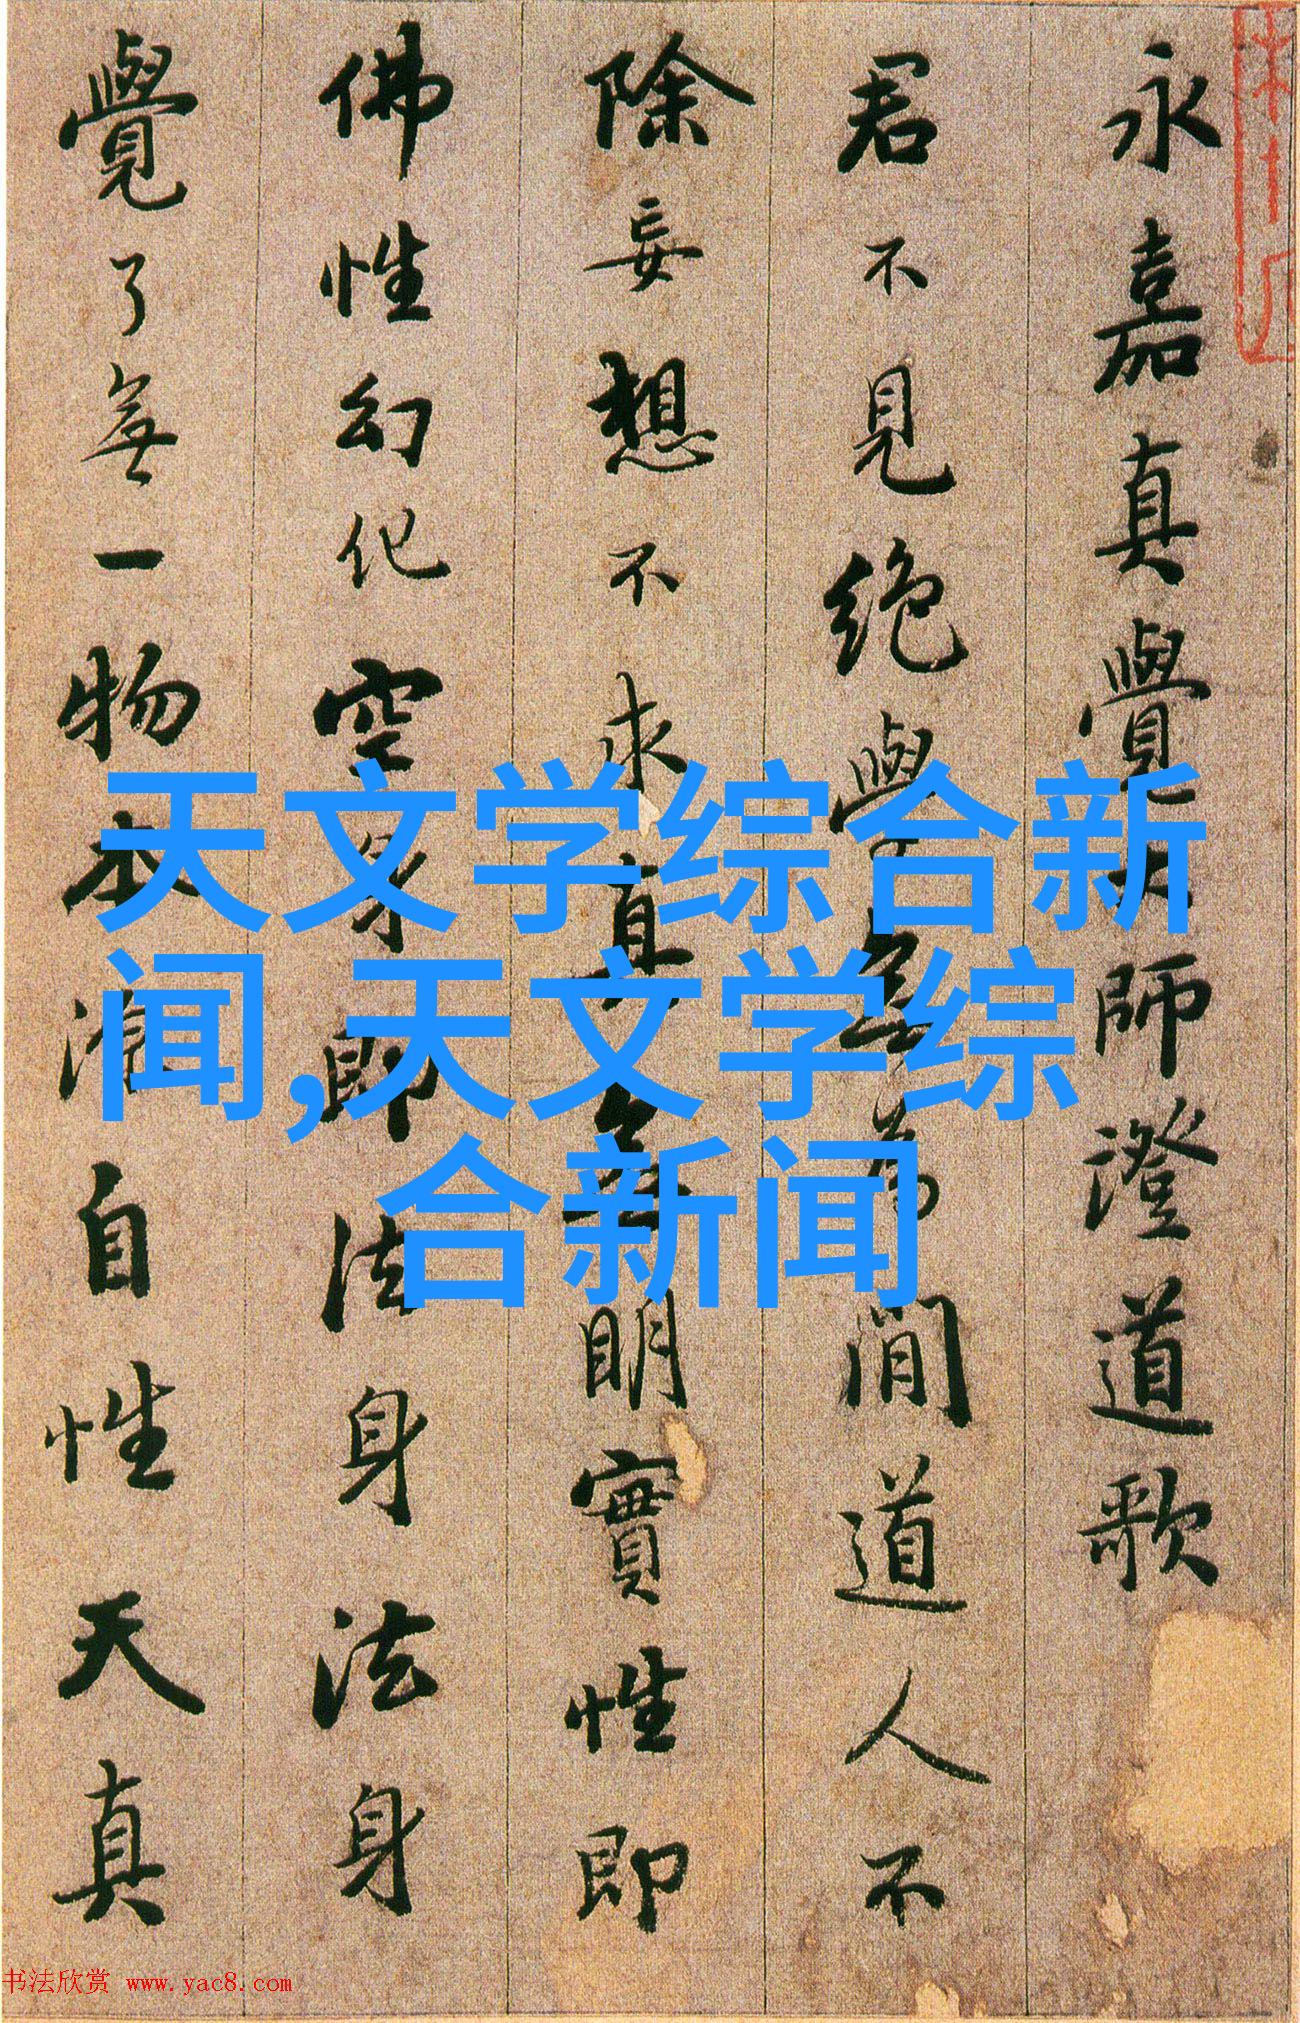 永嘉真覺大師澄道歌
君不見絕學無為閒道人不
除妄想不求真無明實性即
佛性幻化空身即法身法身
覺了無一物本源自性天真
天文学综合新
闻,天文学综
合新闻
书法欣赏 www.yac8.com